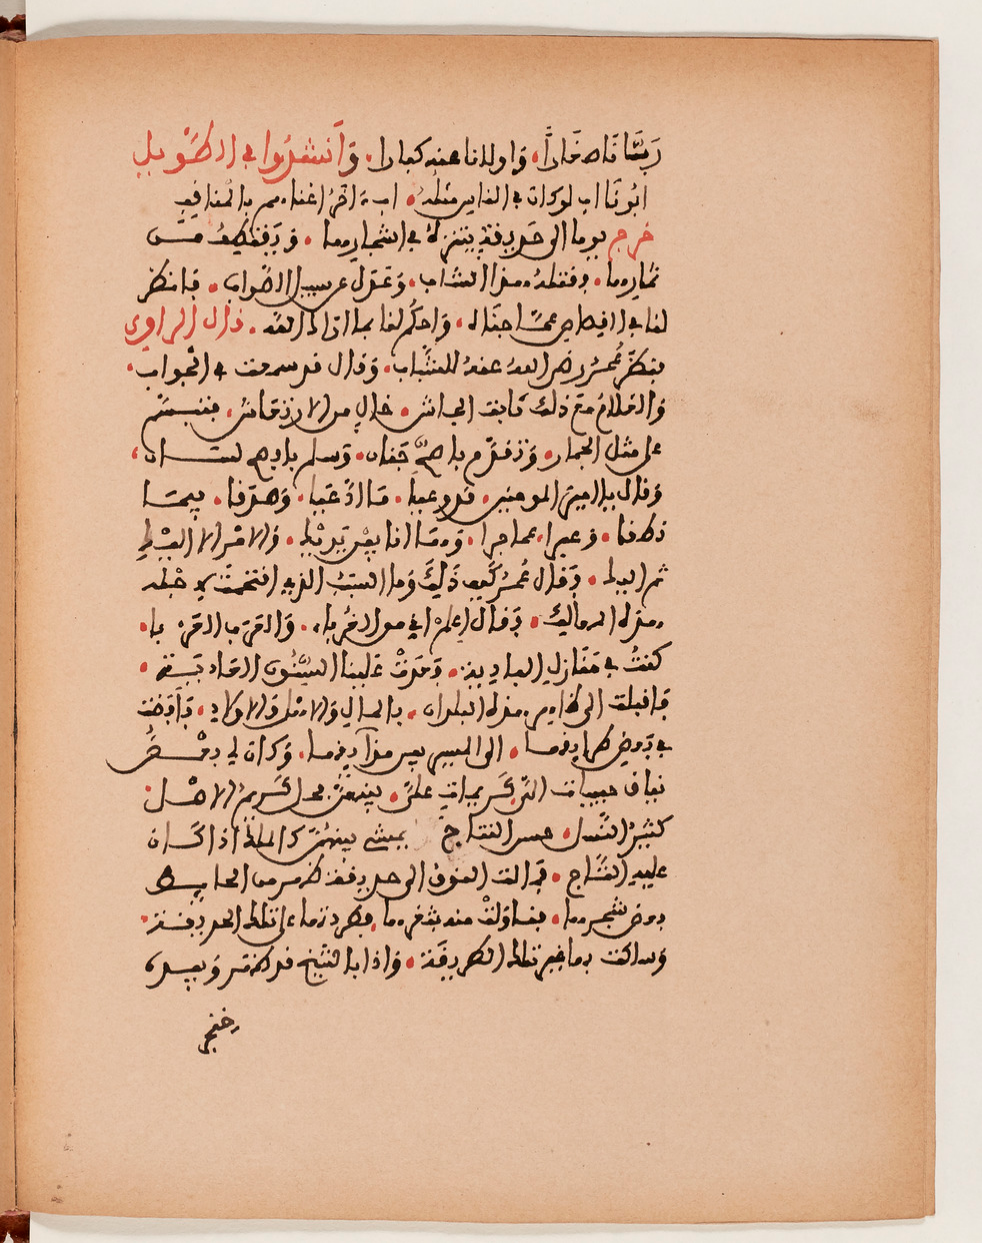 ربانا صغارا، واولانا عنه كبارا، وأنشدوا في الطويل
ابونا اب لو كان في الناس مثله، اب آخر اغناهم بالمناقب
خرج يوما الى حديقة يتنزه في اشجارها، ويقتطف من
ثمارها، فقتله هذا الشاب، وعدل عن سبيل الصواب، فانظر
لنا في القصاص عما جناه، واحكم لنا بما اراك الله، قال الراوي
فنظر عمر رضي الله عنه للشاب، وقال قد سمعت في الجواب،
والغلام مع ذلك ثابت الجاش، خال من الارتعاش، فتبسم
عن مثل الجمار، وتقدم باصح جنان، وسلم بافصح لسان،
وقال يا امير المومنين، قد وعيا، ما ادعيا، وصدقا، فيما
نطقا، وعبرا، عما جرا، وها انا بين يديك، والامر الا اليك
ثم اليك، فقال عمر كيف ذلك وما السبب الذي اقتحمت لاجله
هذه المهالك، فقال اعلم اني من العرباء، والعرب العرباء،
كنت في منازل البادية، وعدت علينا السنون العادية،
فاقبلت الى ظاهر هذه البلدان، بالمال والاهل والاولاد، فافضت
في بعض طرايقها، الى المسير بين حدايقها، وكان لي بعض
نياق حبيبات الى كريمات علي، بينهن فحل كريم الاصل
كثير النسل، حسن النتاج يمشي بينهن كالملك اذا كان
عليه التاج، فمالت النوق الى حديقة ظهر من الحايط
بعض شجرها، فتناولت منه بثغرها، فطردتها عن تلك الحديقة،
وسالت بها غير تلك الطريقة، واذا بالشيخ قد ظهر وبيده
حجر